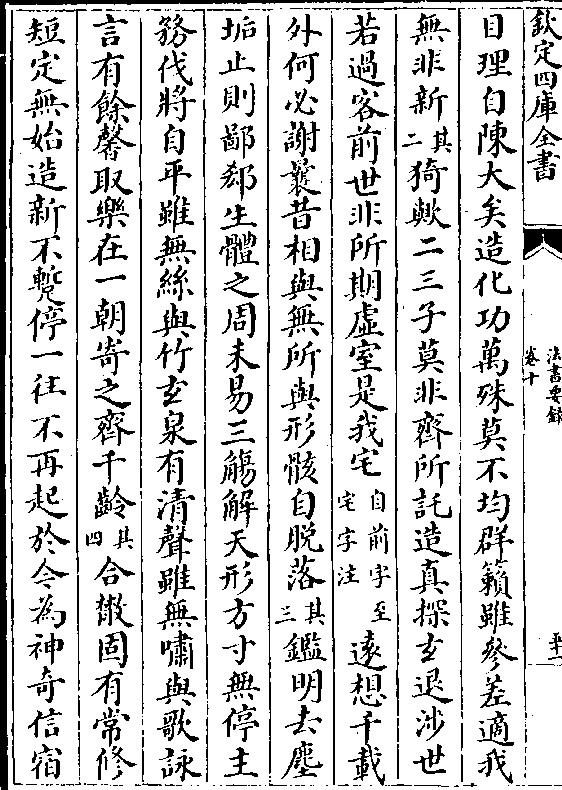 欽定四庫全書
法書要錄
卷十
目理自陳大矣造化功萬殊莫不均群籟雖參差適我
無非新其二猗歟二三子莫非齊所託造真探玄退涉世
若過客前世非所期虛室是我宅自前字至宅字注遠想千載
外何必謝曩昔相與無所與形骸自脫落其三鑑明去塵
垢止則鄙郄生體之周未易三觴解天形方寸無停主
務伐將自平雖無絲與竹玄泉有清聲雖無嘯與歌詠
言有餘馨取樂在一朝寄之齊千齡其四合散固有常修
短定無始造新不蹔停一往不再起於今為神奇信宿